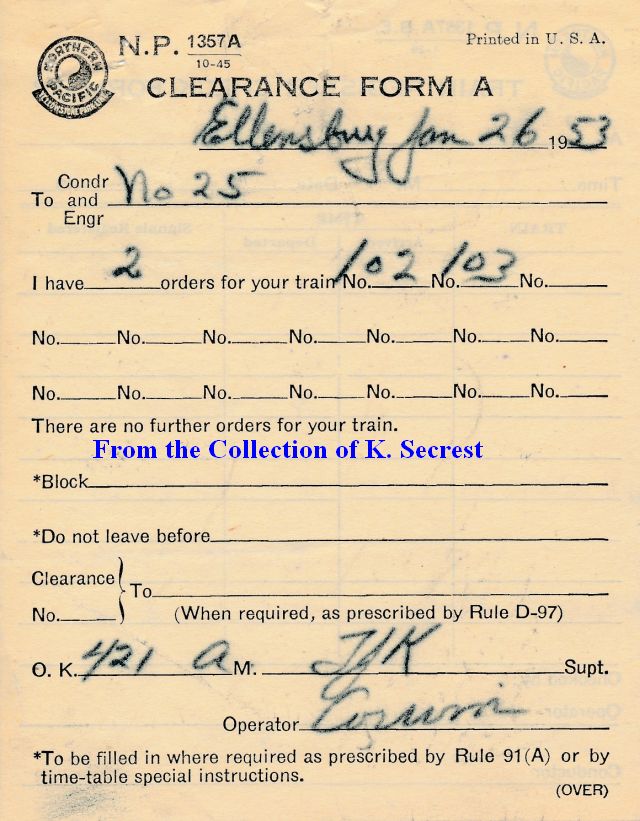 NORTHERN PACIFIC YELLOWSTONE PARK LINE
N.P. 1357A
10-45
Printed in U. S. A.
CLEARANCE FORM A
Ellensburg Jan 26 1953
Condr
To and No 25
Engr
I have 2 orders for your train No. 102 No. 103 No.
No. No. No. No. No. No. No.
No. No. No. No. No. No. No.
There are no further orders for your train.
From the Collection of K. Secrest
*Block
*Do not leave before
Clearance
To
No. (When required, as prescribed by Rule D-97)
O. K. 421 A M. Supt.
Operator
*To be filled in where required as prescribed by Rule 91(A) or by
time-table special instructions.
(OVER)